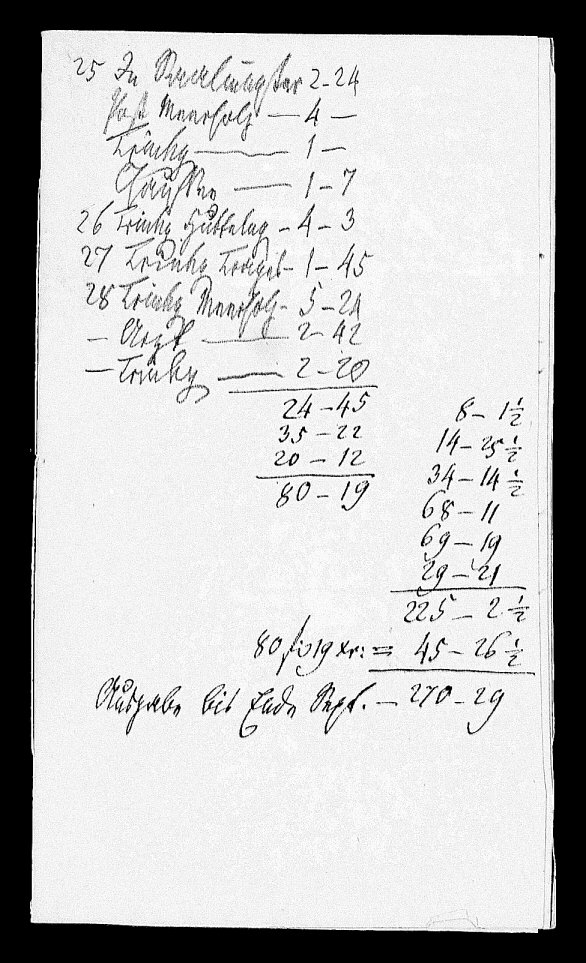 25 In 2-24
Post Meerholz — 4 —
Trinkg — 1 —
— 1 - 7
26 Trinkg - 4 - 3
27 Trinkg - 1 - 45
28 Trinkg Meerholz - 5 - 24
— Arzt — 2 - 42
— Trinkg — 2 - 20
24 - 45
35 - 22
20 - 12
80 - 19
8 - 1 ½
14 - 25 ½
34 - 14 ½
68 - 11
69 - 19
29 - 21
225 - 2 ½
80 19 xr: = 45 - 26 ½
Ausgabe bis Ende Sept. — 270 - 29